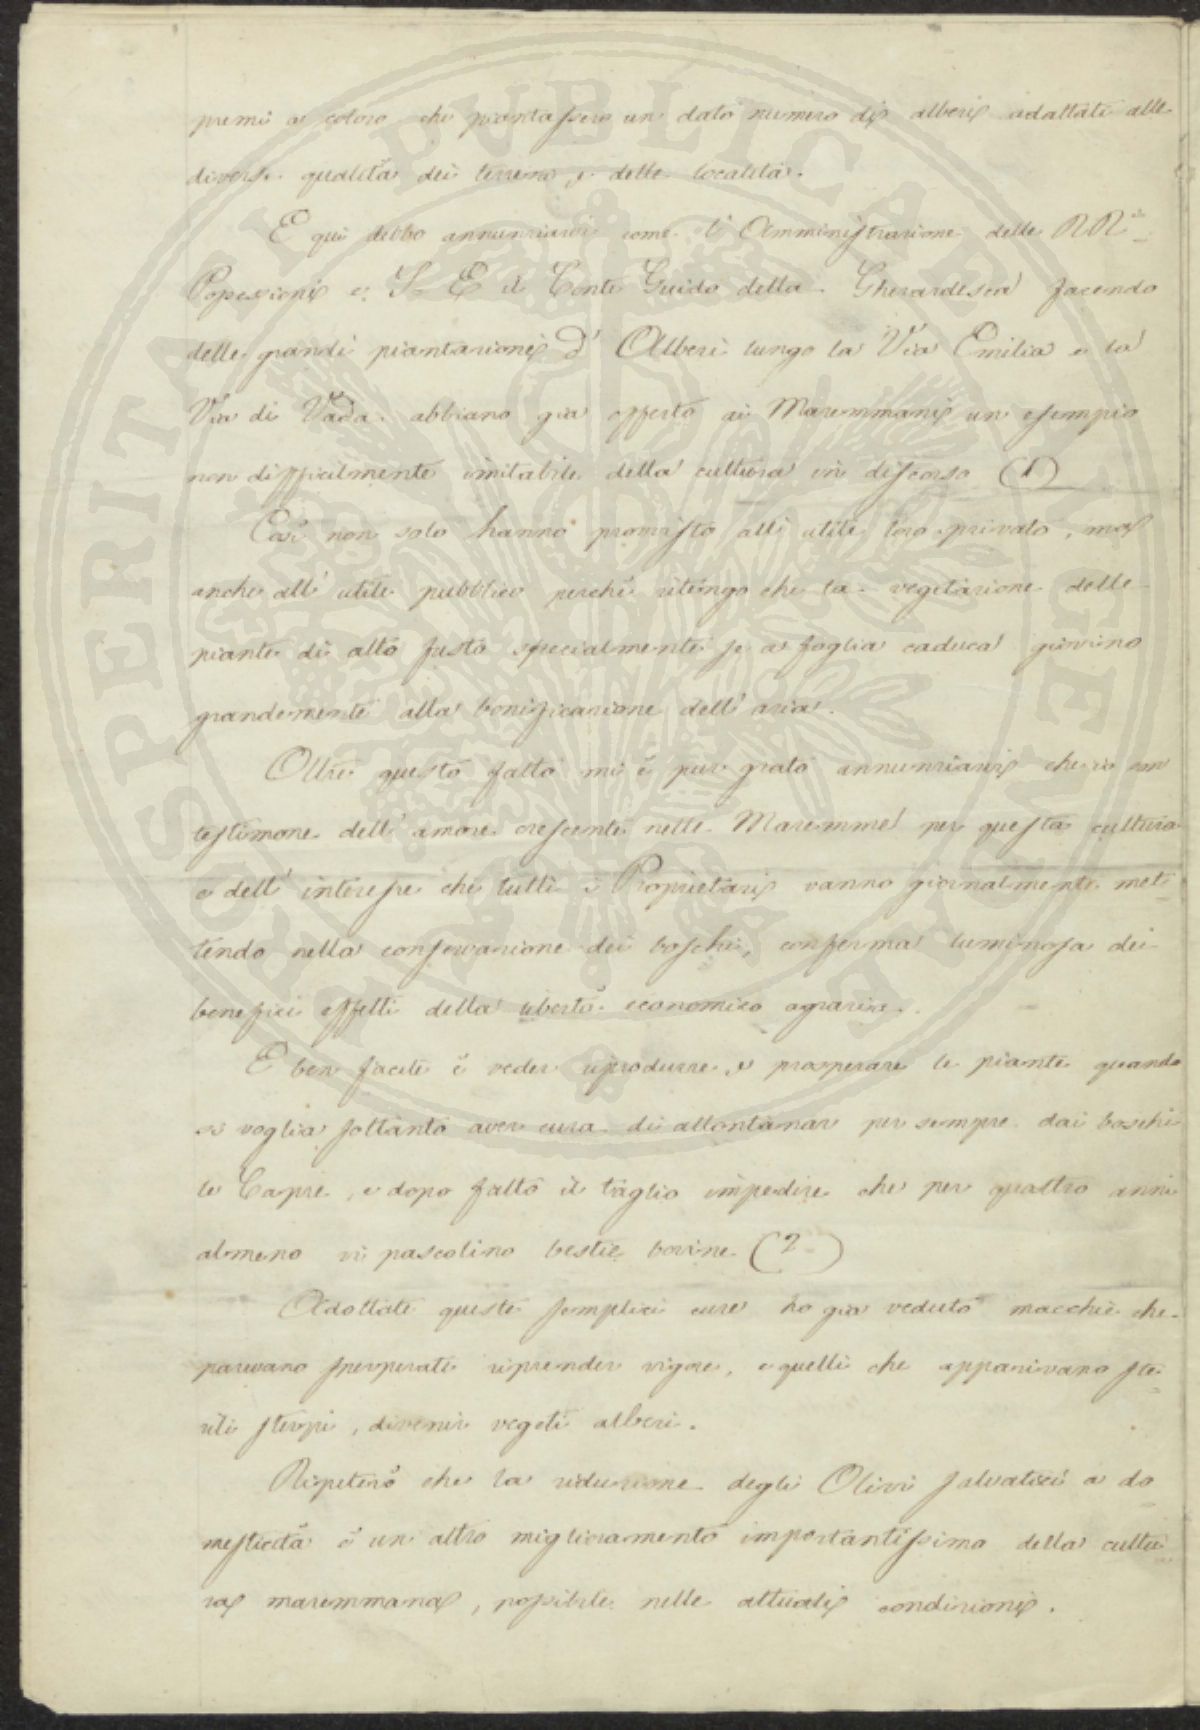 premi a coloro che piantassero un dato numero di alberi adattati alle
diverse qualità dei terreni e delle località.
E qui debbo annunziarvi come l'Amministrazione delle RR.
Possessioni e S. E. il Conte Guido della Gherardesca facendo
delle grandi piantazioni d'Alberi lungo la Via Emilia e la
Via di Vada abbiano già offerto ai Maremmani un esempio
non difficilmente imitabile della cultura in discorso (1)
Così non solo hanno provvisto all'utile loro privato, ma
anche all'utile pubblico perchè ritengo che la vegetazione delle
piante di alto fusto specialmente se a foglia caduca giovino
grandemente alla bonificazione dell'aria.
Oltre questo fatto mi è pur grato annunziarvi che io son
testimone dell'amore crescente nelle Maremme per questa cultura
e dell'interesse che tutti i Proprietari vanno giornalmente met
tendo nella conservazione dei boschi, conferma luminosa dei
benefici effetti della libertà economico agraria.
E ben facile è veder riprodurre e prosperare le piante quando
si voglia soltanto aver cura di allontanar per sempre dai boschi
le Capre, e dopo fatto il taglio impedire che per quattro anni
almeno vi pascolino bestie bovine (2)
Adottate queste semplici cure ho già veduto macchie che
parevano sperperate riprender vigore, e quelli che apparivano ste
rili sterpi, divenir vegeti alberi.
Ripeterò che la riduzione degli Olivi salvatici a do
mesticità è un altro miglioramento importantissimo della cultu
ra maremmana, possibile nelle attuali condizioni.
PROSPERITATI PUBLICAE AUGENDAE